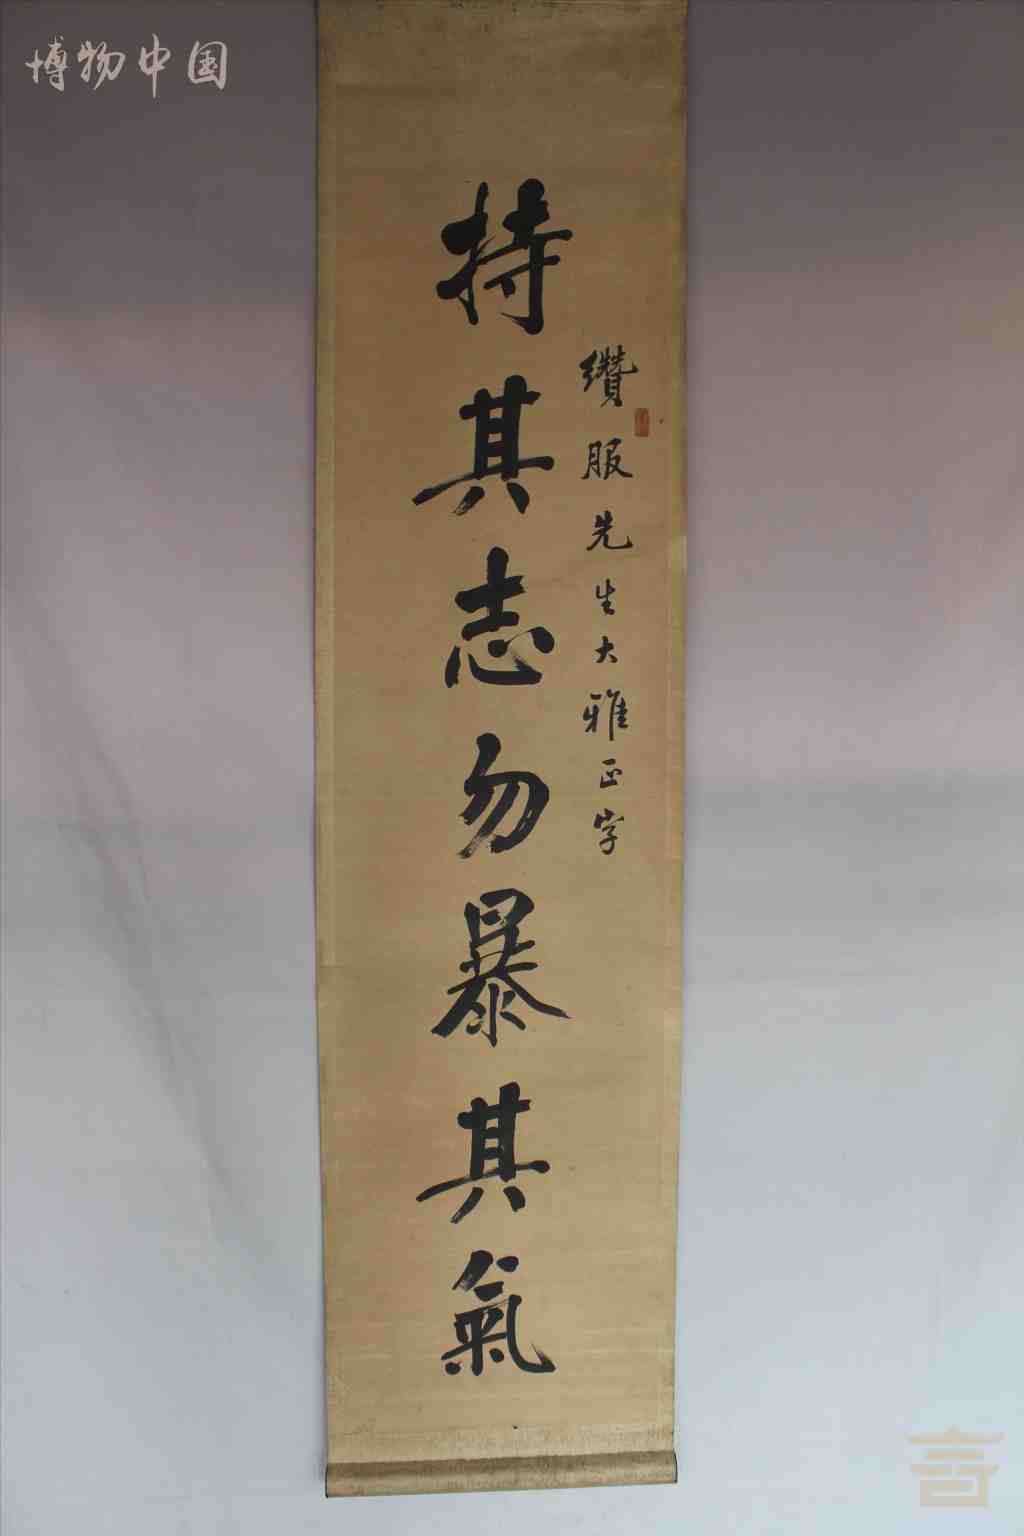 博物中国
纘服先生大雅正字
持其志勿暴其氣